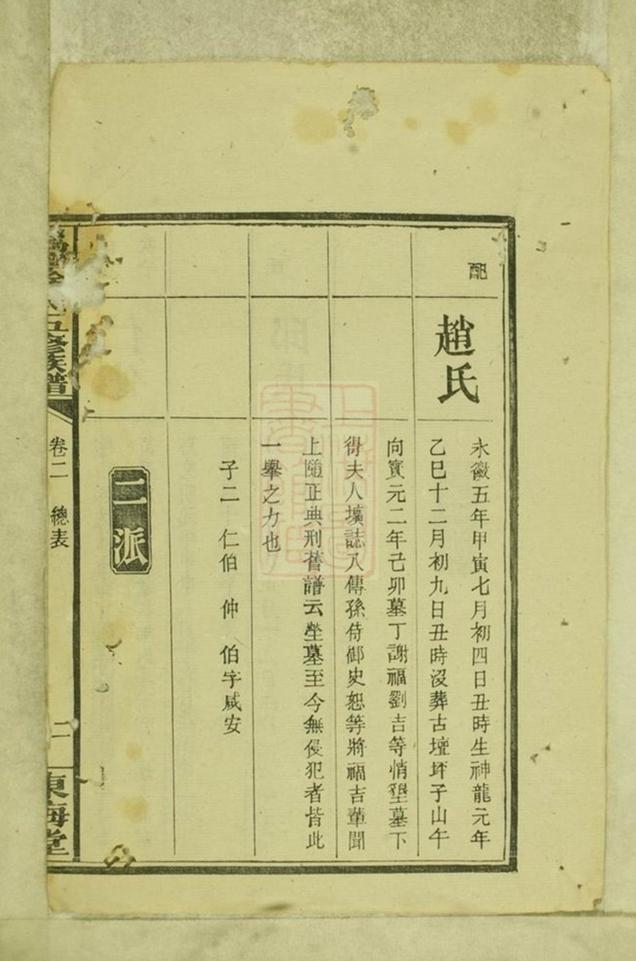 配
趙氏
永徽五年甲寅七月初四日丑時生神龍元年
乙巳十二月初九日丑時沒葬古壇坪子山午
向寶元二年己卯墓丁謝福劉吉等悄墾墓下
得夫人壙誌八傳孫侍御史恕等將福吉輩聞
上隨正典刑舊譜云塋墓至今無侵犯者皆此
一舉之力也
子二 仁伯 仲 伯字咸安
二派
五修族譜
卷二 總表
二
東海堂